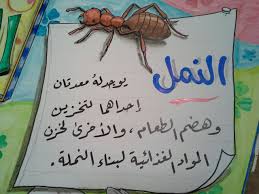 النمل
يوجد له معدتان
إحداها لتخزين
وهضم الطعام، والأخرى لخزن
المواد الغذائية لبناء النملة.